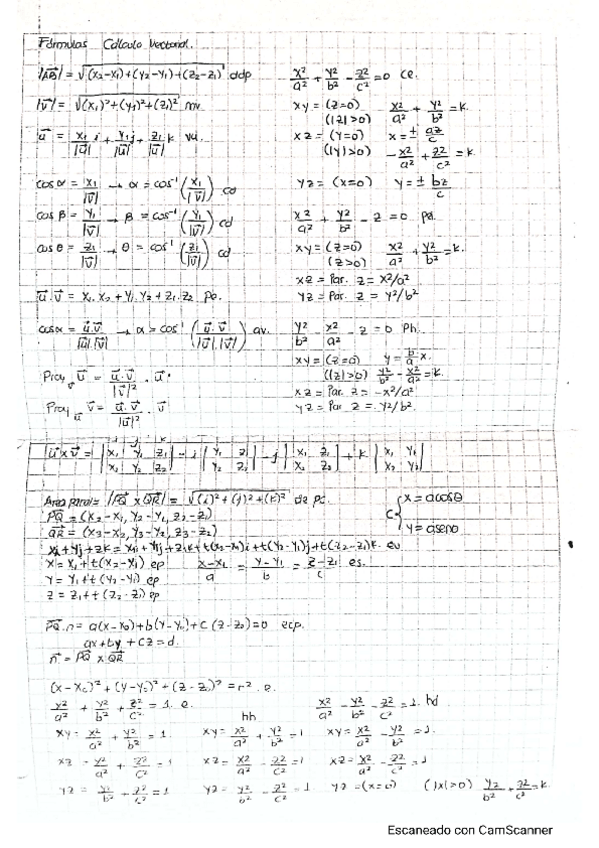 Fórmulas Cálculo Vectorial.
|AB| = √((x₂-x₁)+(y₂-y₁)+(z₂-z₁)²) ddp
|V⃗| = √((x₁)²+(y₁)²+(z₁)²) mv.
u⃗ = x₁/|u⃗| i + y₁/|u⃗| j + z₁/|u⃗| k vu.
cosα = x₁/|v⃗| → α = cos⁻¹(x₁/|v⃗|) cd
cos β = y₁/|v⃗| → β = cos⁻¹(y₁/|v⃗|) cd
cos θ = z₁/|v⃗| → θ = cos⁻¹(z₁/|v⃗|) cd
u⃗·v⃗ = x₁.x₂ + y₁.y₂ + z₁.z₂ pe.
cosα = u⃗·v⃗/|u⃗|.|v⃗| → α = cos⁻¹(u⃗·v⃗/|u⃗|.|v⃗|) av.
Proy v u⃗ = u⃗·v⃗/|v⃗|² . u⃗
Proy u v⃗ = u⃗·v⃗/|u⃗|² . v⃗
x²/a² + y²/b² - z²/c² = 0 ce.
xy = (z=0) x²/a² + y²/b² = k.
(|z|>0)
xz = (y=0) x = ± az/c
(|y|>0) -x²/a² + z²/c² = k
yz = (x=0) y = ± bz/c
x²/a² + y²/b² - z = 0 pe.
xy = (z=0) x²/a² + y²/b² = k.
(z>0)
xz = Par. z = x²/a²
yz = Par. z = y²/b²
y²/b² - x²/a² - z = 0 Ph.
xy = (z=0) y = b/a x.
(|z|>0) y²/b² - x²/a² = k.
xz = Par z = -x²/a²
yz = Par z = y²/b².
i j k
u⃗xv⃗ = |x₁ y₁ z₁| = i |y₁ z₁| - j |x₁ z₁| + k |x₁ y₁|
|x₂ y₂ z₂| |y₂ z₂| |x₂ z₂| |x₂ y₂|
Area paral = |PQ x QR| = √((i)²+(j)²+(k)²)
PQ = (x₂-x₁, y₂-y₁, z₂-z₁)
QR = (x₃-x₂, y₃-y₂, z₃-z₂)
C { x = acosθ
y = asenθ
xi+yj+zk = x₁i+y₁j+z₁k+t(x₂-x₁)i+t(y₂-y₁)j+t(z₂-z₁)k. ev
x = x₁+t(x₂-x₁) ep x-x₁/a = y-y₁/b = z-z₁/c es.
y = y₁+t(y₂-y₁) ep
z = z₁+t(z₂-z₁) ep
PQ.n = a(x-x₀)+b(y-y₀)+c(z-z₀)=0 ecp.
ax+by+cz=d.
n⃗ = PQ x QR
(x-x₀)²+(y-y₀)²+(z-z₀)²=r². e.
x²/a² + y²/b² + z²/c² = 1. e.
xy = x²/a² + y²/b² = 1.
xz = x²/a² + z²/c² = 1
yz = y²/b² + z²/c² = 1
hh
xy = x²/a² + y²/b² = 1
xz = x²/a² - z²/c² = 1
yz = y²/b² - z²/c² = 1
x²/a² - y²/b² - z²/c² = 1. hd
xy = x²/a² - y²/b² = 1.
xz = x²/a² - z²/c² = 1
yz = (x=0) (|x|>0) y²/b² + z²/c² = k.
Escaneado con CamScanner